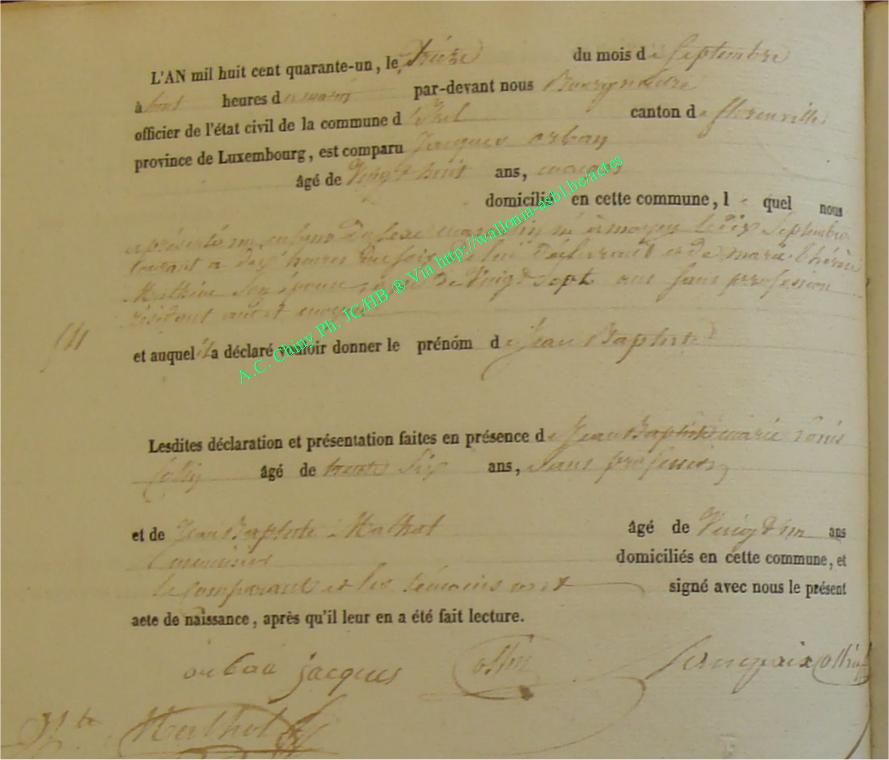 L'AN mil huit cent quarante-un, le treize du mois de Septembre
à huit heures du matin par-devant nous Bourgmestre
officier de l'état civil de la commune d canton de florenville
province de Luxembourg, est comparu Jacques orban
âgé de Vingt huit ans, maçon
domicilié en cette commune, le quel nous
a présenté un enfant du sexe masculin né à moyen le dix Septembre
courant a dix heures du soir de lui déclarant et de marie thérèse
Mathieu Son épouse agée de Vingt Sept ans Sans profession
résidant audit moyen
et auquel il a déclaré vouloir donner le prénom de Jean Baptiste
Lesdites déclaration et présentation faites en présence de Jean Baptiste marie Louis
Collin âgé de trente Six ans, Sans profession
et de Jean Baptiste Mathot âgé de Vingt un ans
domiciliés en cette commune, et
le comparant et les témoins ont signé avec nous le présent
acte de naissance, après qu'il leur en a été fait lecture.
orban jacques Collin
Mathot
A.C. Chiny Ph. JC/HB ® Via http://wallonia-asbl.be/actes